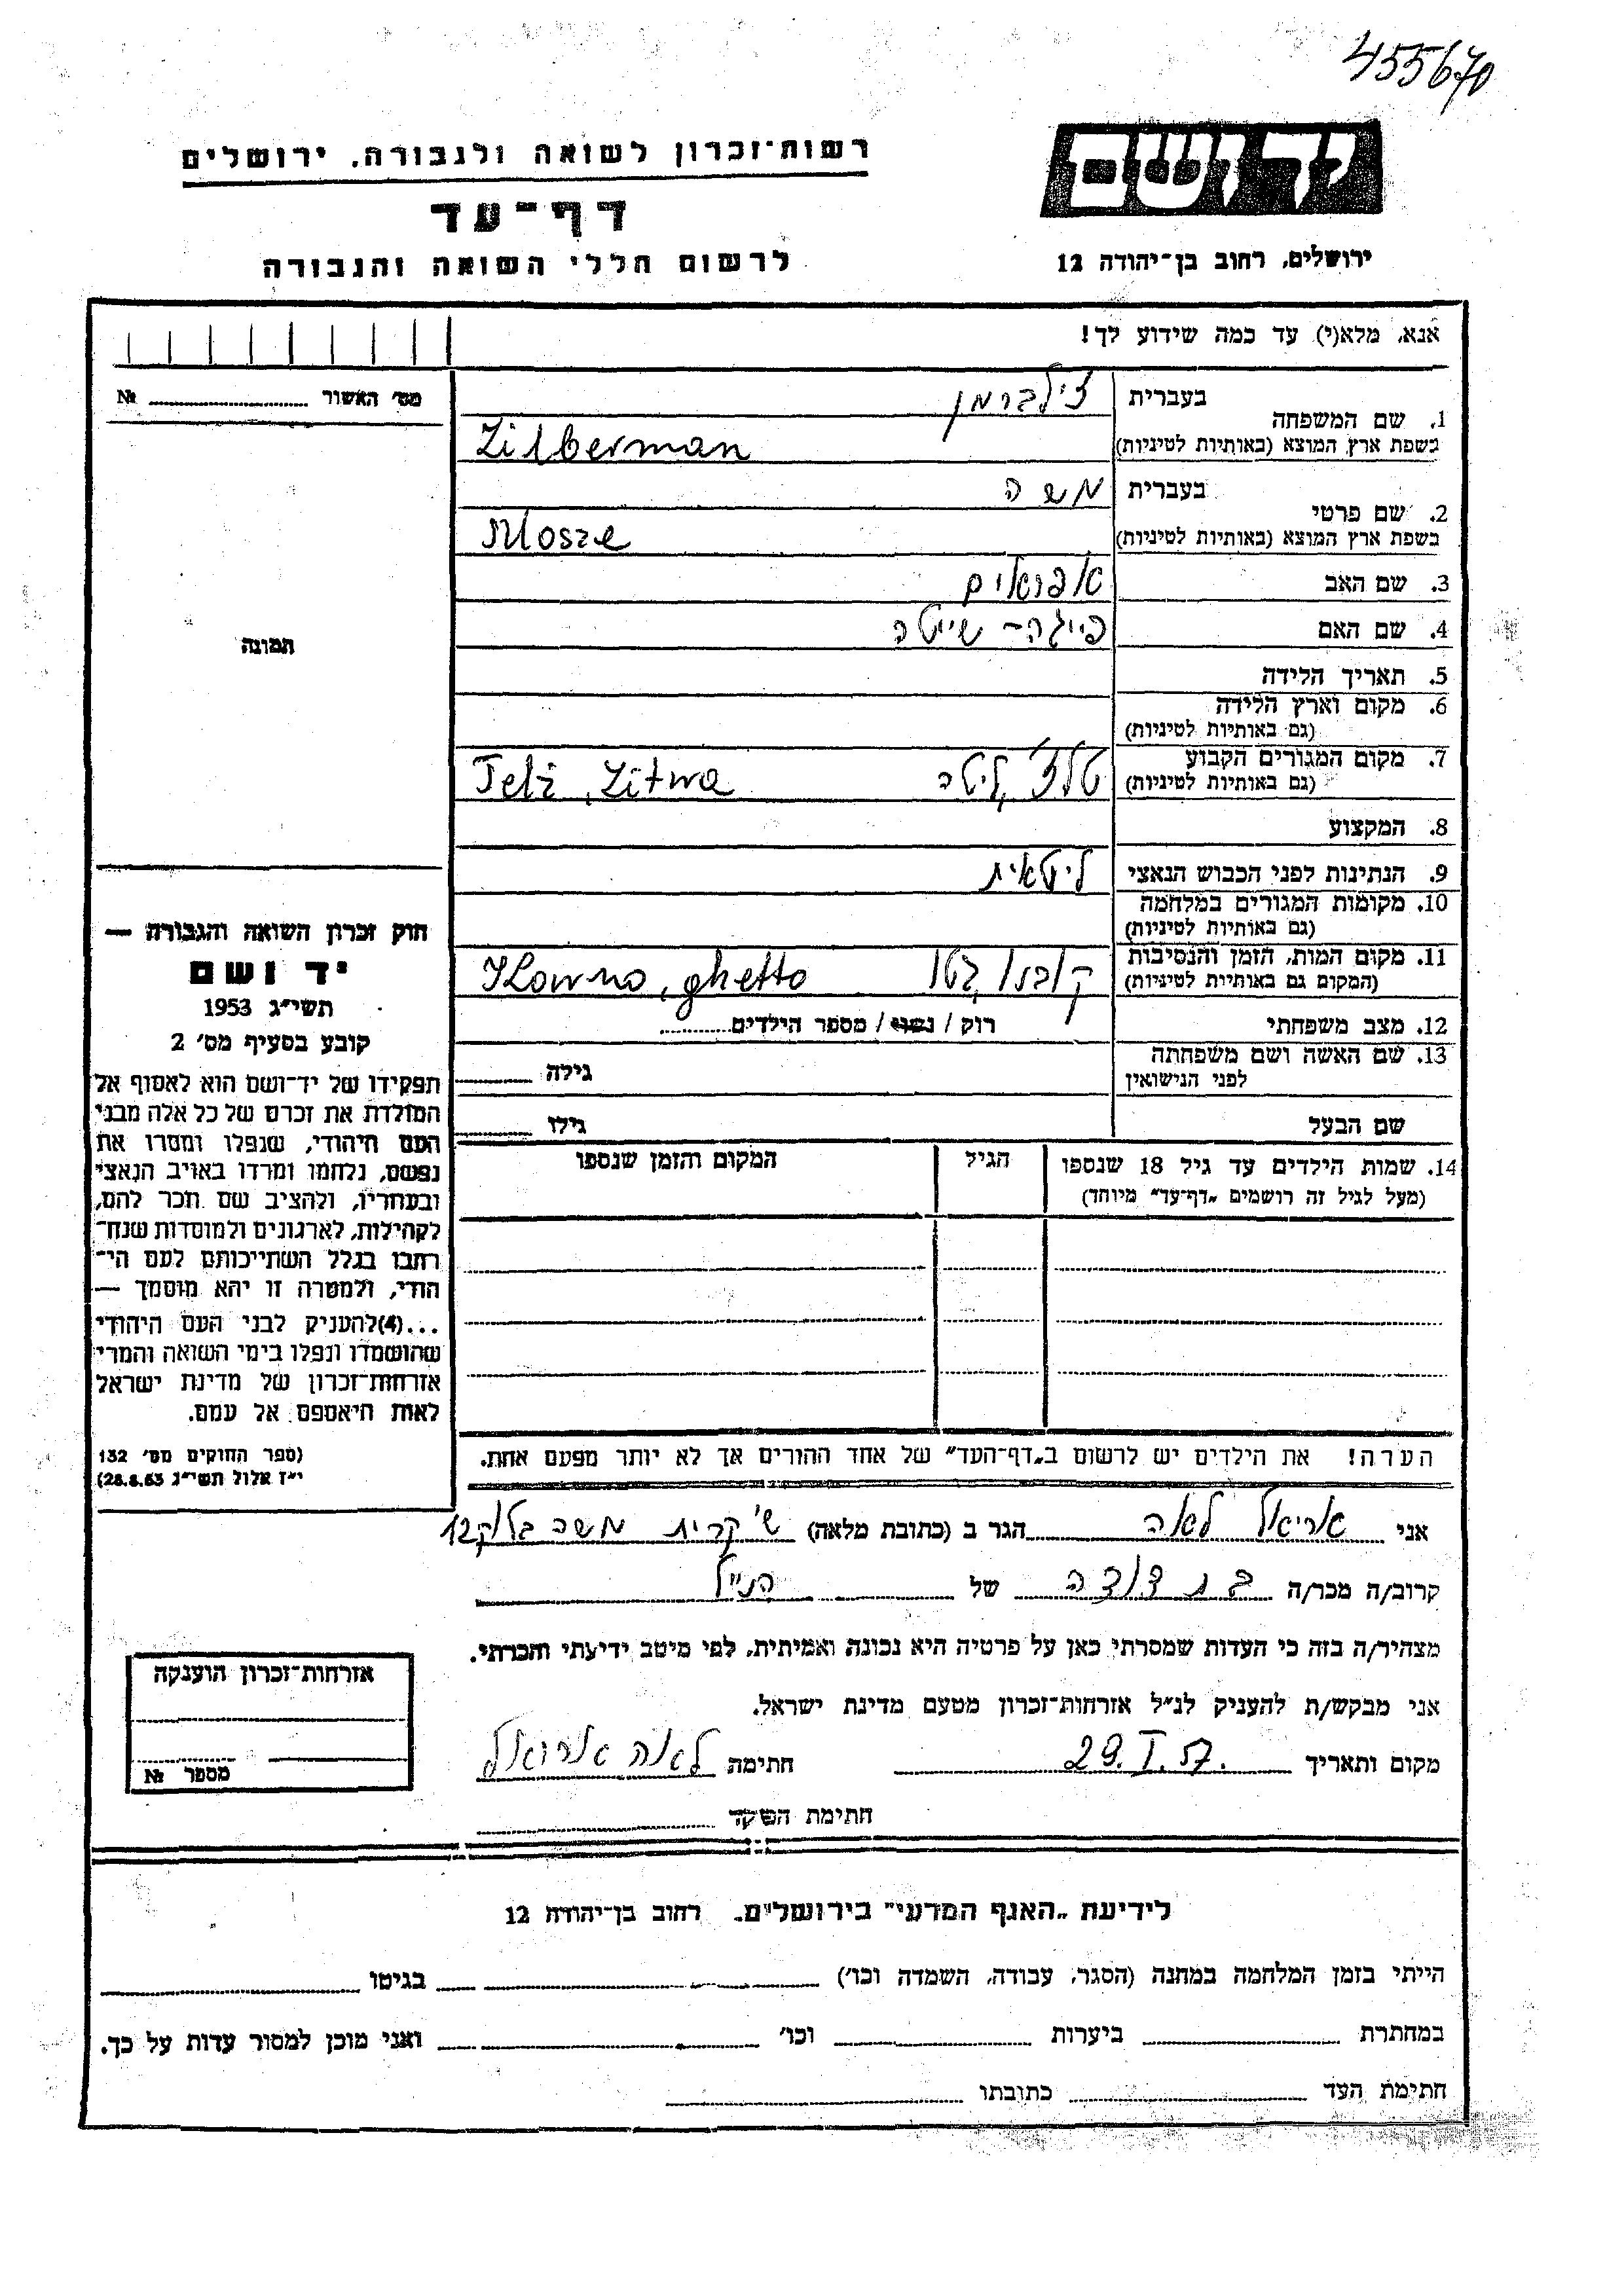 455670
יד ושם
ירושלים, רחוב בן־יהודה 12
רשות־זכרון לשואה ולגבורה. ירושלים
דף־עד
לרשום חללי השואה והגבורה
אנא, מלא(י) עד כמה שידוע לך!
מס׳ האשור № ........
תמונה
1. שם המשפחה בעברית צילברמן
בשפת ארץ המוצא (באותיות לטיניות) Zilberman
2. שם פרטי בעברית משה
בשפת ארץ המוצא (באותיות לטיניות) Mosze
3. שם האב אפראים
4. שם האם פייגה - שייטה
5. תאריך הלידה
6. מקום וארץ הלידה
(גם באותיות לטיניות)
7. מקום המגורים הקבוע טלז׳, ליטה Telż, Litwa
(גם באותיות לטיניות)
8. המקצוע
9. הנתינות לפני הכבוש הנאצי ליטאית
10. מקומות המגורים במלחמה
(גם באותיות לטיניות)
11. מקום המות, הזמן והנסיבות קובנו, גטו Kowno, ghetto
(המקום גם באותיות לטיניות)
12. מצב משפחתי רוק / נשוי / מספר הילדים........
13. שם האשה ושם משפחתה גילה ........
לפני הנישואין
שם הבעל גילו ........
14. שמות הילדים עד גיל 18 שנספו הגיל המקום והזמן שנספו
(מעל לגיל זה רושמים „דף־עד״ מיוחד)
הערה! את הילדים יש לרשום ב„דף־העד״ של אחד ההורים אך לא יותר מפעם אחת.
חוק זכרון השואה והגבורה —
יד ושם
תשי״ג 1953
קובע בסעיף מס׳ 2
תפקידו של יד־ושם הוא לאסוף אל
המולדת את זכרם של כל אלה מבני
העם היהודי, שנפלו ומסרו את
נפשם, נלחמו ומרדו באויב הנאצי
ובעוזריו, ולהציב שם וזכר להם,
לקהילות, לארגונים ולמוסדות שנח־
רבו בגלל השתייכותם לעם הי־
הודי, ולמטרה זו יהא מוסמך —
...(4)להעניק לבני העם היהודי
שהושמדו ונפלו בימי השואה והמרי
אזרחות־זכרון של מדינת ישראל
לאות היאספם אל עמם.
(ספר החוקים מס׳ 132
י״ז אלול תשי״ג 28.8.53)
אני אריאל לאה הגר ב (כתובת מלאה) ש׳ קרית משה בלוק 12
קרוב/ה מכר/ה בת דודה של הנ״ל
מצהיר/ה בזה כי העדות שמסרתי כאן על פרטיה היא נכונה ואמיתית, לפי מיטב ידיעתי והכרתי.
אני מבקש/ת להעניק לנ״ל אזרחות־זכרון מטעם מדינת ישראל.
מקום ותאריך 29.I.57. חתימה לאה אריאל
חתימת הפוקד ........
אזרחות־זכרון הוענקה
מספר №
לידיעת „האגף המדעי״ בירושלים. רחוב בן־יהודה 12
הייתי בזמן המלחמה במחנה (הסגר, עבודה, השמדה וכו׳) ........ בגיטו ........
במחתרת ........ ביערות ........ וכו׳ ........ ואני מוכן למסור עדות על כך.
חתימת העד ........ כתובתו ........